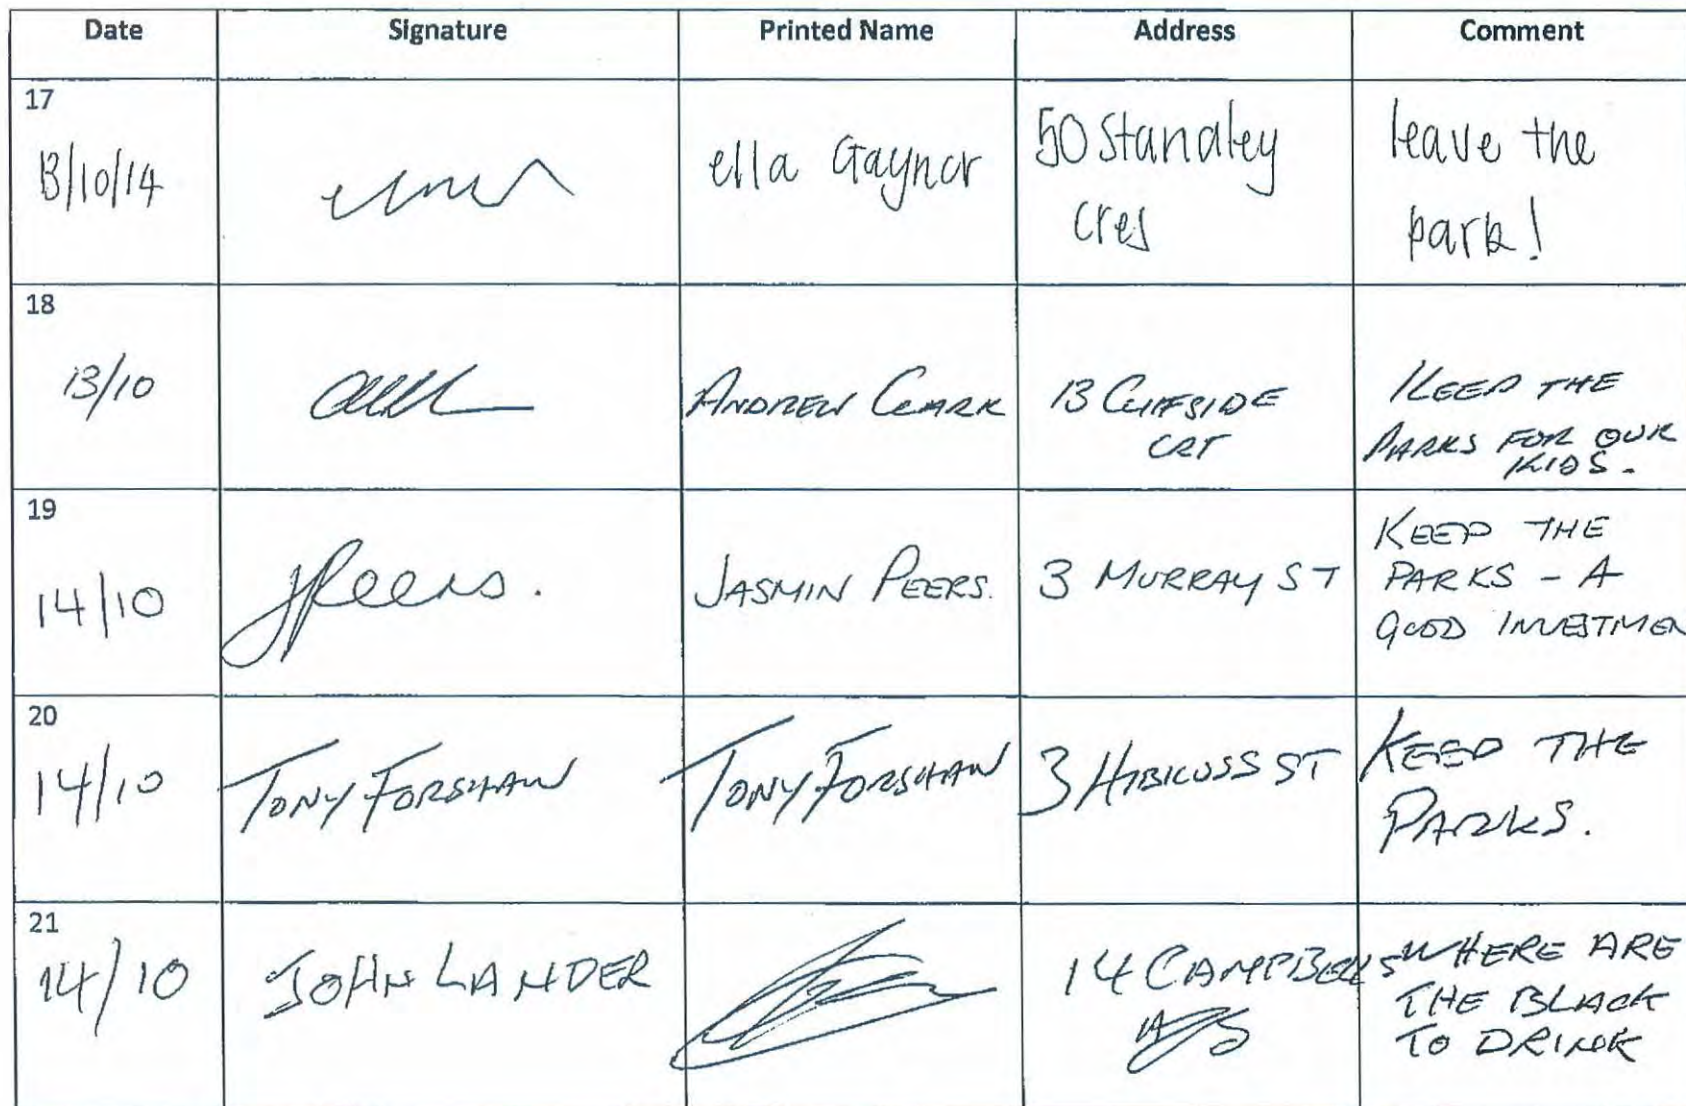 Date Signature Printed Name Address Comment
17
13/10/14 ella Gaynor 50 Standley leave the
cres park!
18
13/10 ANDREW CLARK 13 CLIFFSIDE KEEP THE
CRT PARKS FOR OUR
KIDS.
19
14/10 JPeers. JASMIN PEERS. 3 MURRAY ST KEEP THE
PARKS - A
GOOD INVESTMEN
20
14/10 TONY FORSHAW TONY FORSHAW 3 HIBICUSS ST KEEP THE
PARKS.
21
14/10 JOHN LANDER 14 CAMPBELLS WHERE ARE
THE BLACK
TO DRINK